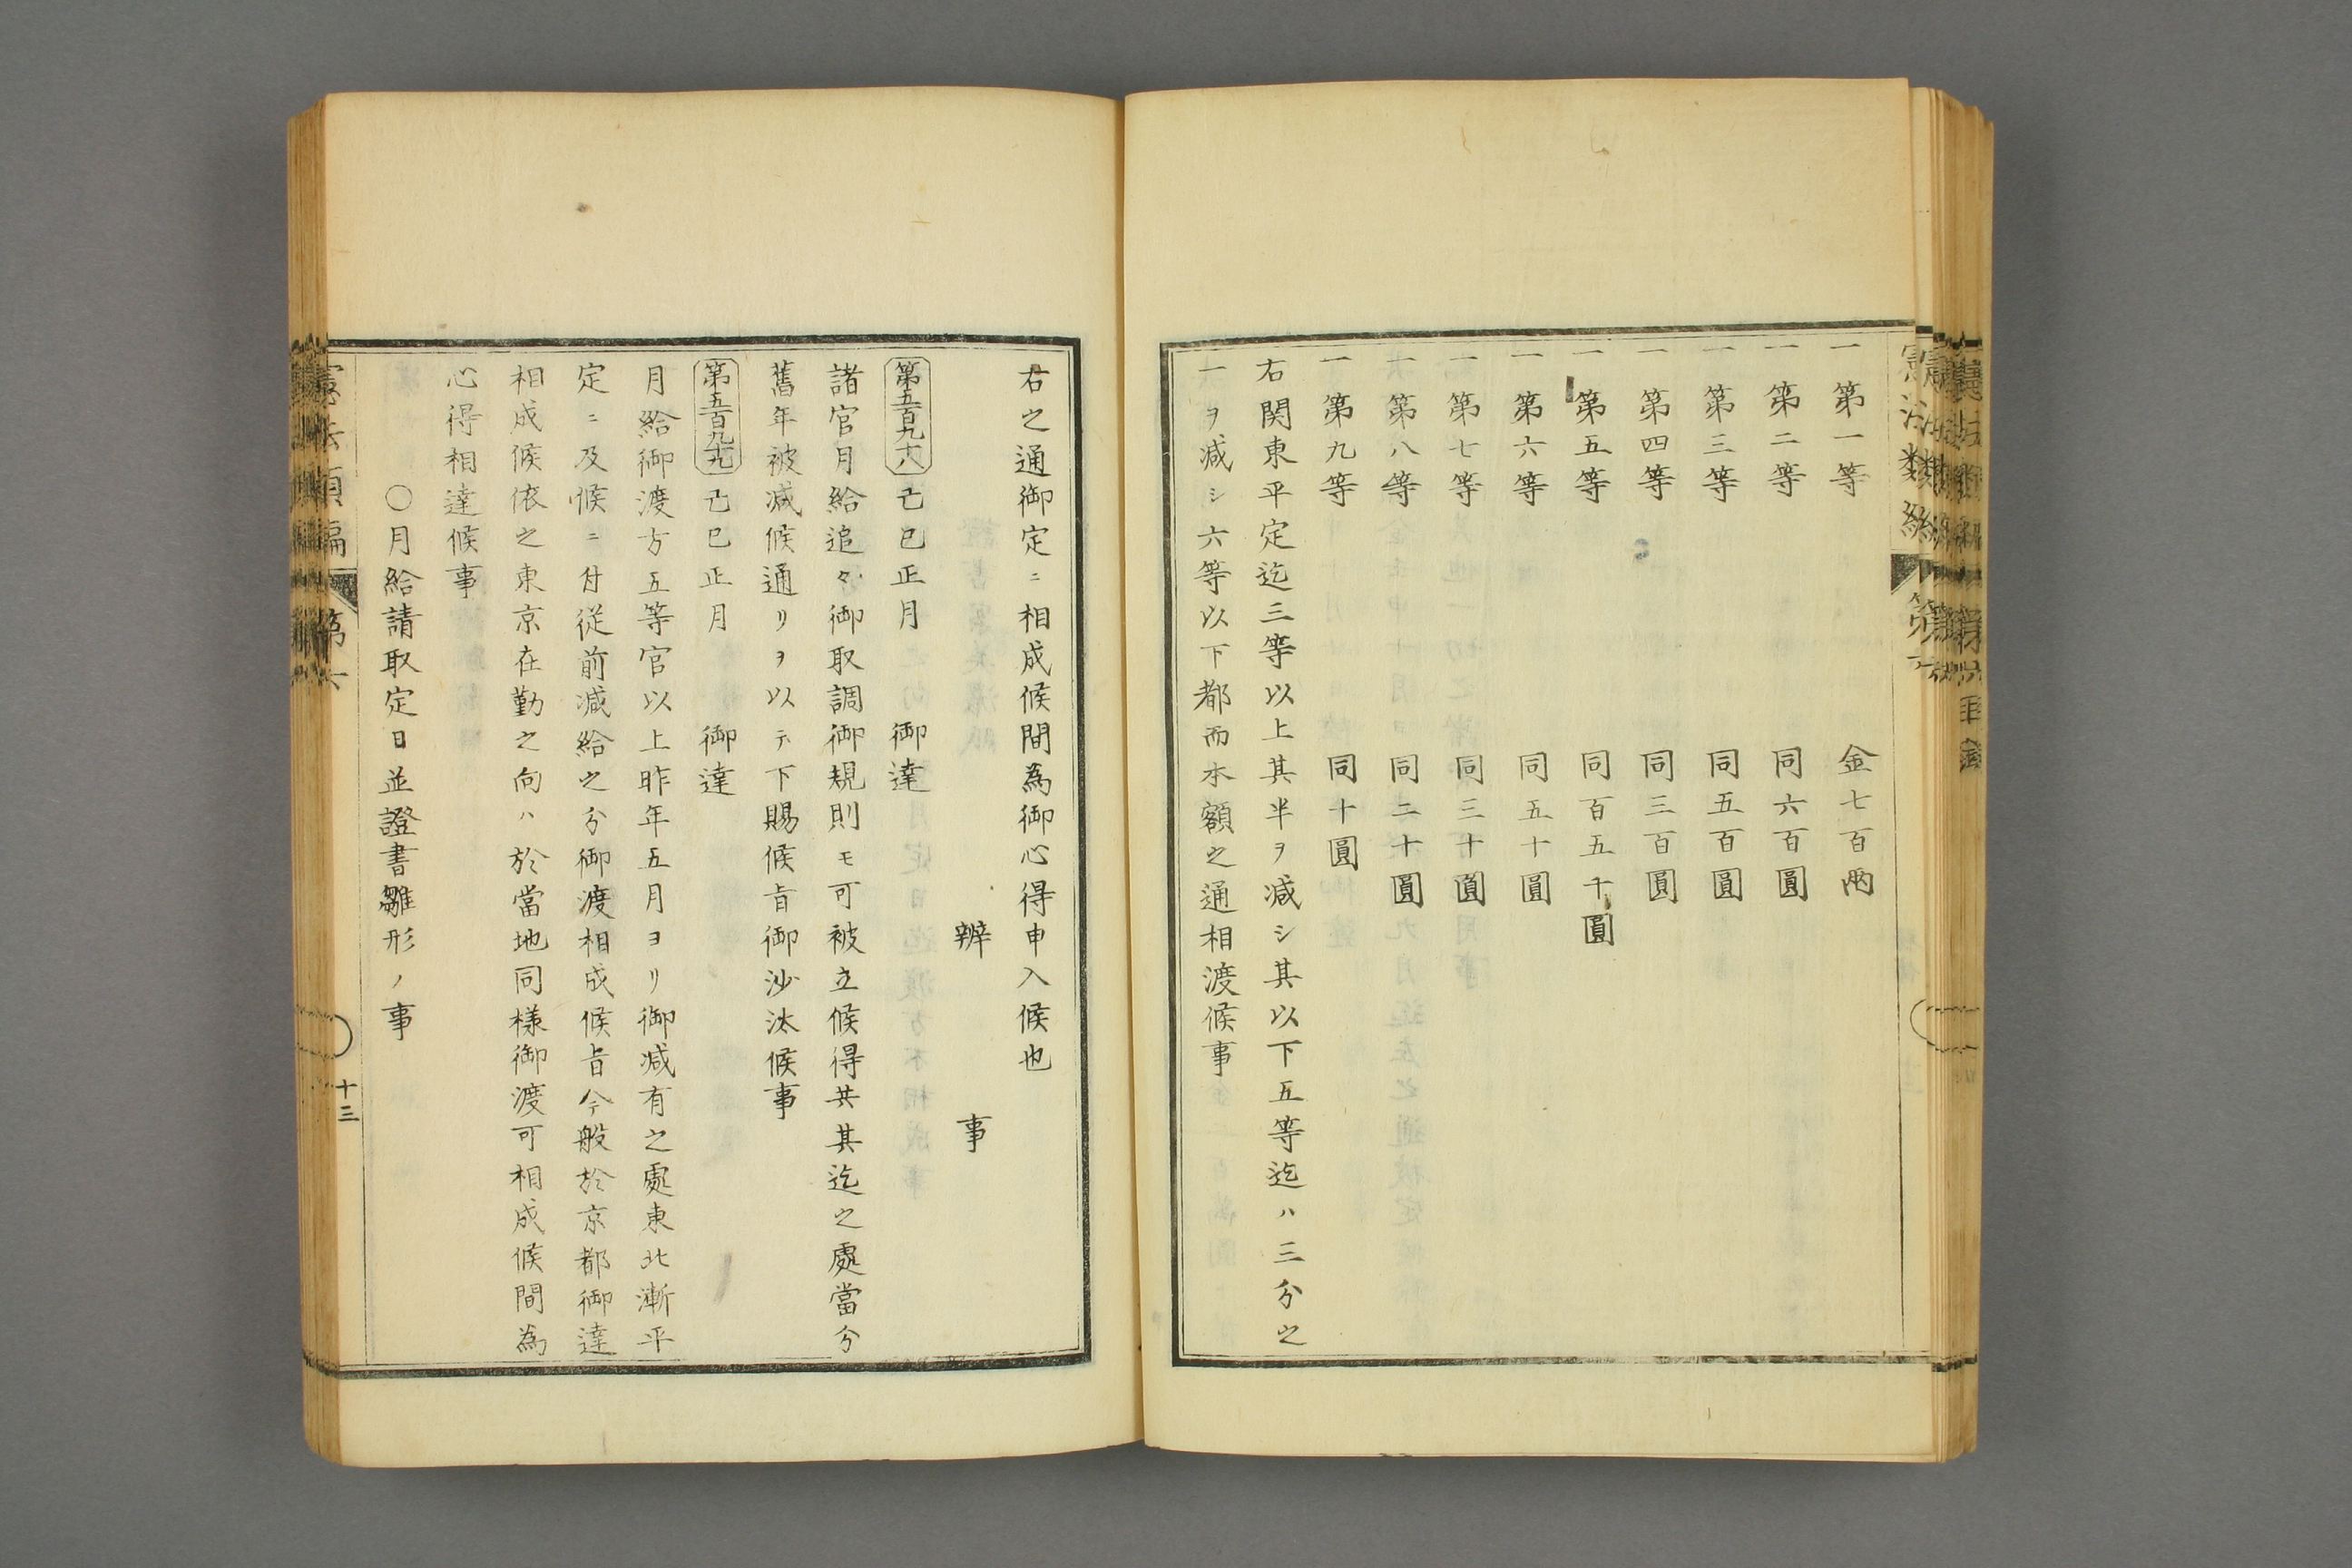 一第一等 金七百兩
一第二等 同六百圓
一第三等 同五百圓
一第四等 同三百圓
一第五等 同百五十圓
一第六等 同五十圓
一第七等 同三十圓
一第八等 同二十圓
一第九等 同十圓
右関東平定迄三等以上其半ヲ減シ其以下五等迄ハ三分之
一ヲ減シ六等以下都而本額之通相渡候事
右之通御定ニ相成候間為御心得申入候也
辨事
第五百九十八 己巳正月 御達
諸官月給追々御取調御規則モ可被立候得共其迄之處當分
舊年被減候通リヲ以テ下賜候旨御沙汰候事
第五百九十九 己巳正月 御達
月給御渡方五等官以上昨年五月ヨリ御減有之處東北漸平
定ニ及候ニ付従前減給之分御渡相成候旨今般於京都御達
相成候依之東京在勤之向ハ於當地同様御渡可相成候間為
心得相達候事
〇月給請取定日並證書雛形ノ事
憲法類編 第六
十三